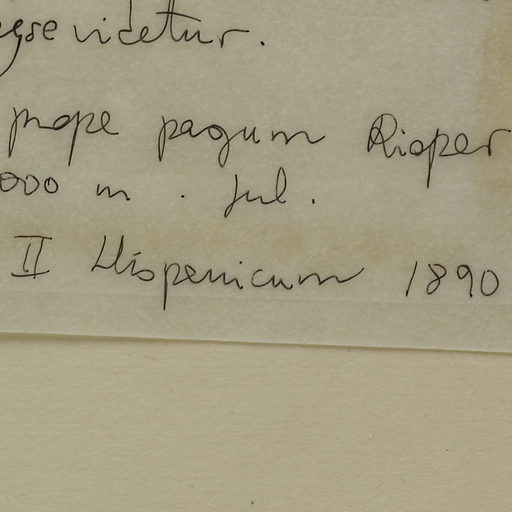 videtur.
prope pagum Rioper
000 m. Jul.
II Hispanicum 1890